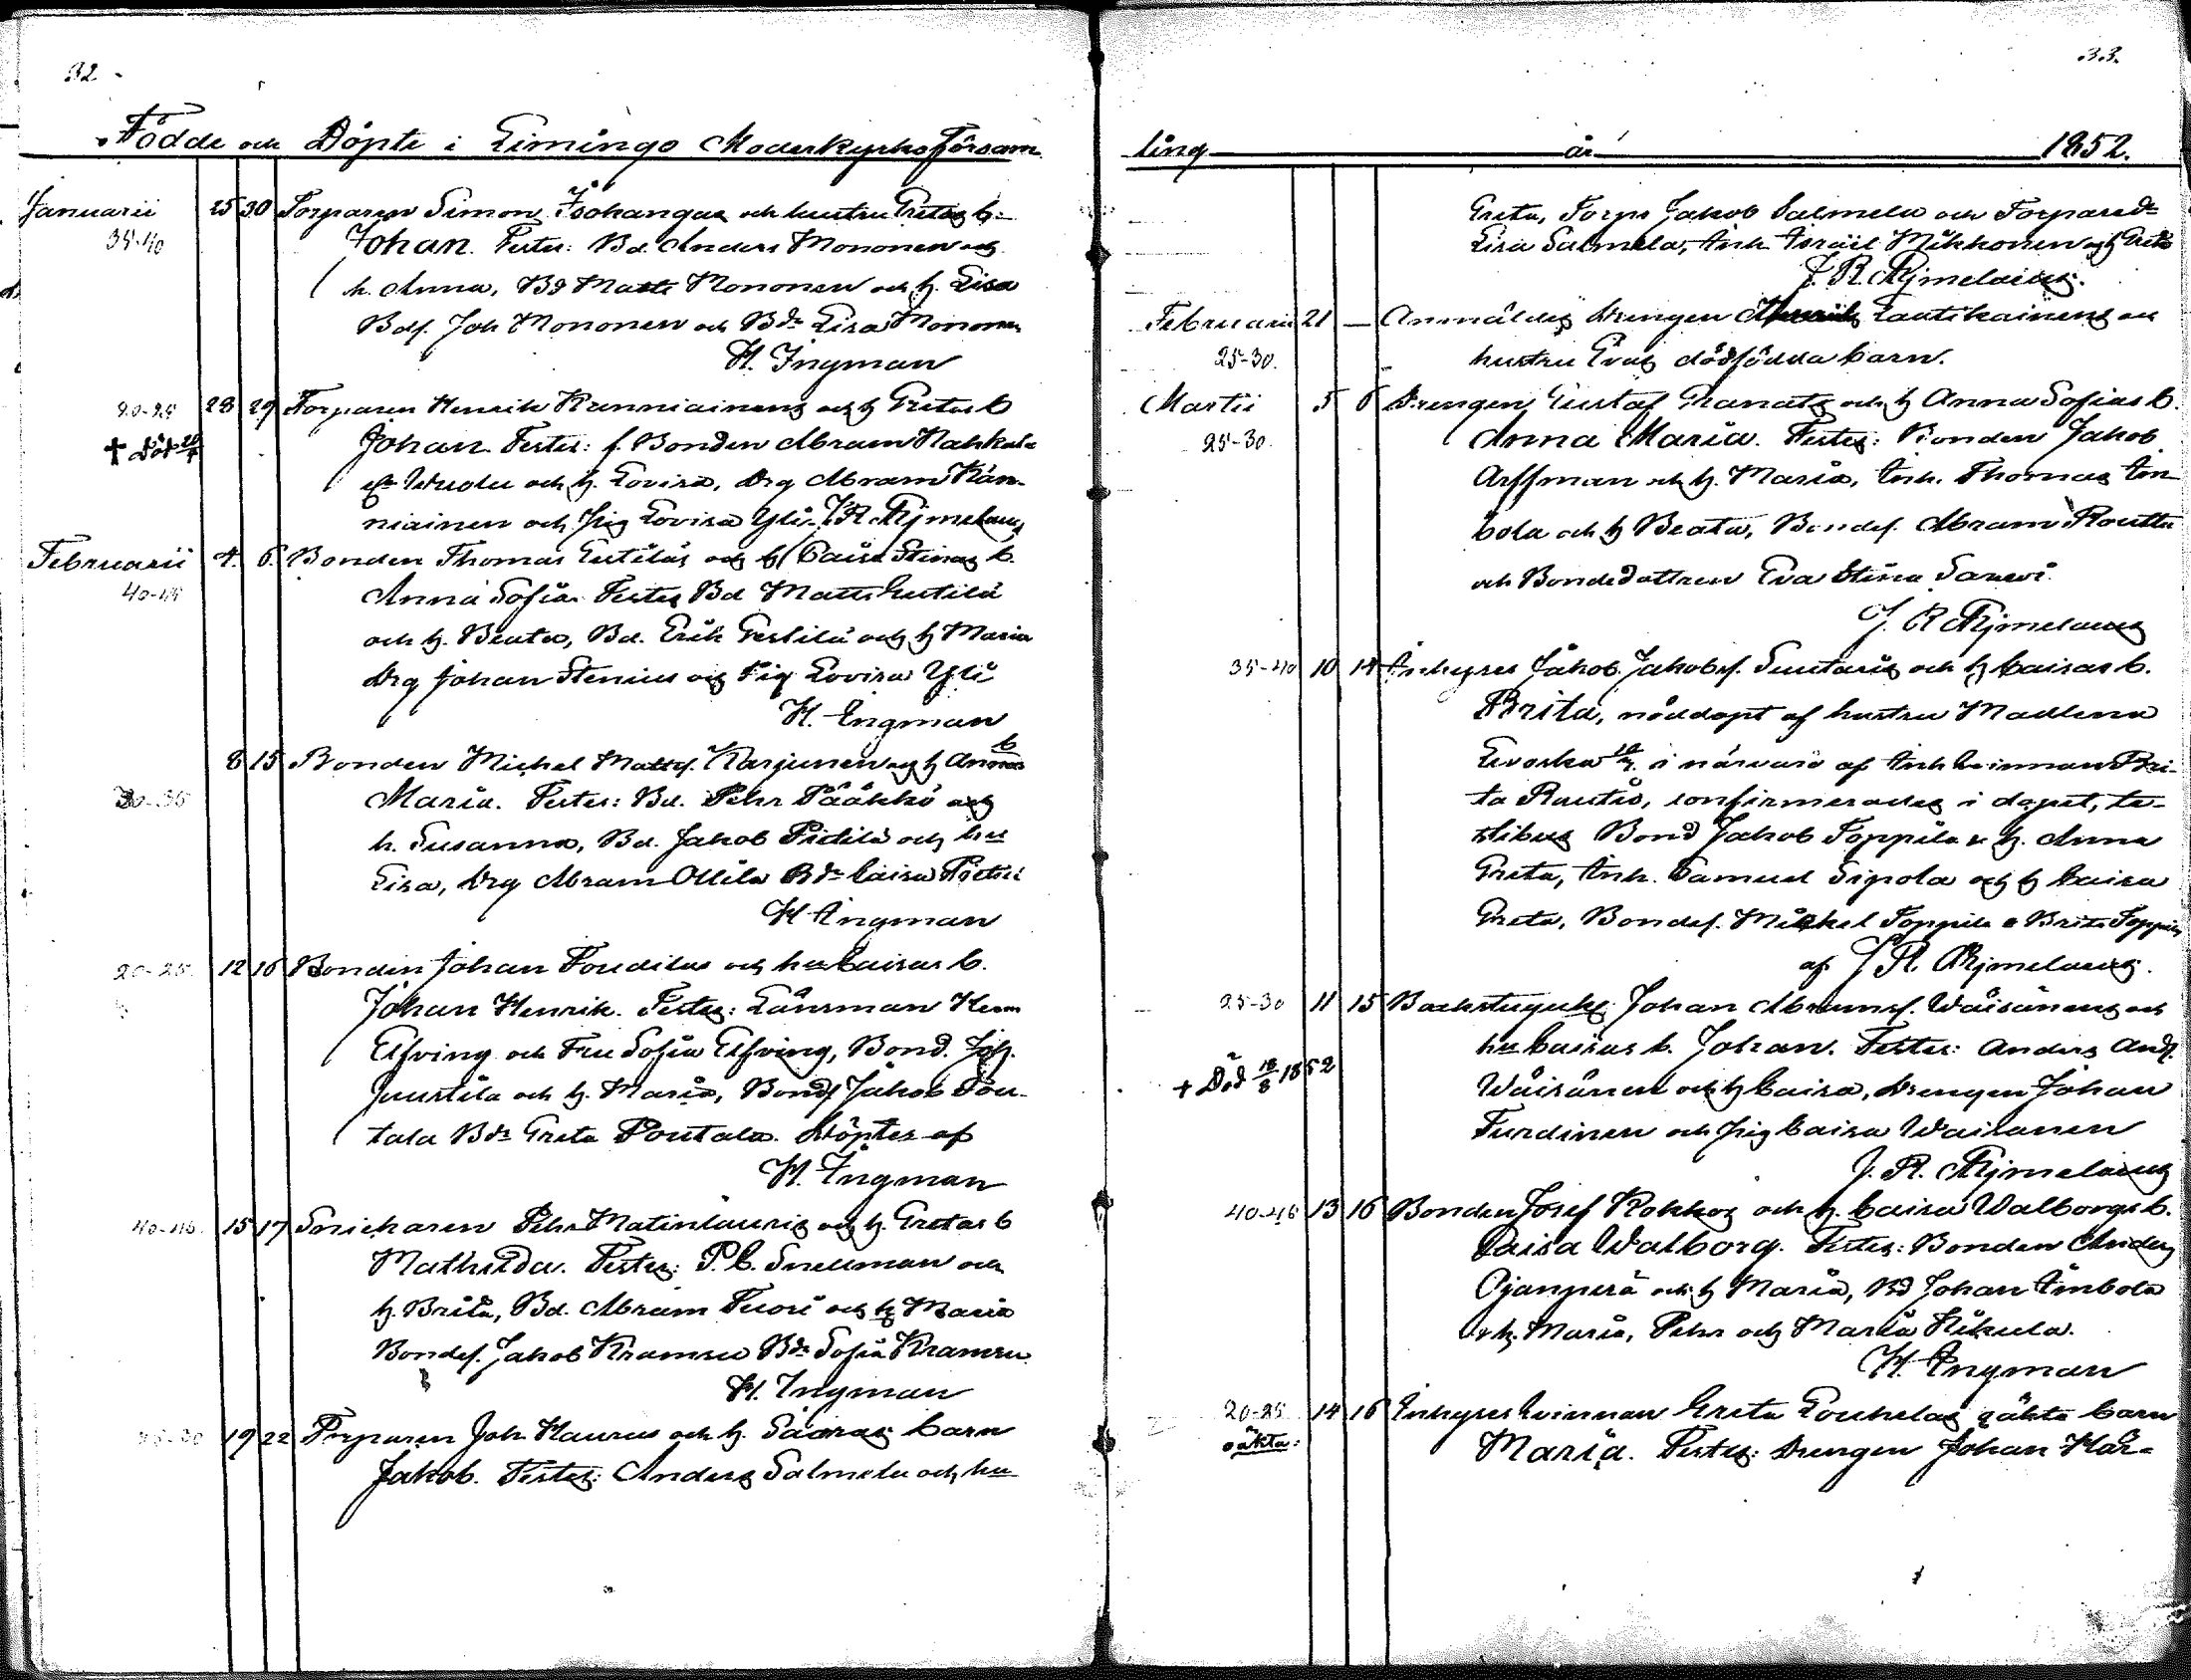 32
Födde och Döpte i Limingo Moderkyrko Försam
Januarii 25 30 Torparen Simon Isohangas och hustru Gretas b.
35-40 Johan. Testes: Bd. Anders Mononen och
h. Anna, Bd Matts Mononen och h. Lisa
Bds. Joh Mononen och Bdr Lisa Mononen
H. Ingman
20-25 28 29 Torparen Henrik och h Gretas b
† Död Johan. Testes: f. Bonden Abram
och h. Lovisa, Drg Abram Kän-
niainen och Pig Lovisa Yli- J. R. Hjmelæus
Februarii 4. 6. Bonden Thomas och h Caisa Stinas b.
40-45 Anna Sofia. Testes Bd Matts
och h. Beata, Bd. Erik och h Maria
Drg Johan Stenius och Pig Lovisa Yli
H. Ingman
b
8 15 Bonden Michel Mattss. Karjunen och h Annas
30-35 Maria. Testes: Bd. Pehr Pääkkö och
h. Susanna, Bd. Jakob Pietilä och hu
Lisa, Drg Abram Ollila Bdr Caisa Pietilä
H Ingman
20-25. 12 16 Bonden Johan och hu Caisas b.
Johan Henrik. Testes: Länsman Herm
Elfving och Fru Sofia Elfving, Bond. Joh.
Juustila och h. Maria, Bonds Jakob Pou-
tala Bdr Greta Poutala. Döptes af
H. Ingman
40-45. 15 17 Pehr Matinlauris och h. Gretas b
Mathilda. Testes: P. C. Snellman och
h. Brita, Bd. Abram Tuori och h Maria
Bondes. Jakob Kramsu Bdr Sofia Kramsu
H. Ingman
19 22 Torparen Joh. Haurus och h. Saaras barn
Jakob. Testes: Anders Salmela och hu
33.
ling år 1852.
Greta, Torps Jakob Salmela och Torparedr
Lisa Salmela, Inh. Israël Mikkonen och h Greta
J. R. Hjmelæus.
Februarii 21 — Anmäldes Drengen Lautikainens och
25-30. hustru Evas dödfödda barn.
Martii 5 6 Drengen Gustaf Granats och h Anna Sofias b.
25-30. Anna Maria. Testes: Bonden Jakob
Arffman och h. Maria, Inh. Thomas Am-
bola och h Beata, Bondes. Abram Routtu
och Bondedottren Eva Stina Sarwi.
J. R Hjmelæus
35-40 10 14 Inhyses Jakob Jakobss. Suutaris och h Caisas b.
Brita, nöddöpt af hustru Madlena
i närvaro af Inh. qvinnan Bri-
ta Rautio, confirmerades i dopet, te-
stibus Bond Jakob Toppila & h. Anna
Greta, Inh. Samuel Sipola och h Caisa
Greta, Bondes. Mickel Toppila & Brita Toppila
af J R. Hjmelæus.
25-30 11 15 Backstugukl. Johan Abramss. Wäisänens och
hu Caisas b. Johan. Testes: Anders Ands.
† Död 18/8 1852 Wäisänen och h Caisa, Drengen Johan
Turdinen och Pig Caisa Waisanen
J. R. Hjmelæus
40-45 13 16 Bonden Josef Kokkos och h. Caisa Walborgs b.
Caisa Walborg. Testes: Bonden Anders
Ojanperä och h Maria, Bd Johan Ambola
& h. Maria, Pehr och Maria Kikula.
H. Ingman
20-25 14 16 Inhyses Qvinnan Greta Louhelas oäkta barn
oäkta: Maria. Testes: Drengen Johan Här-